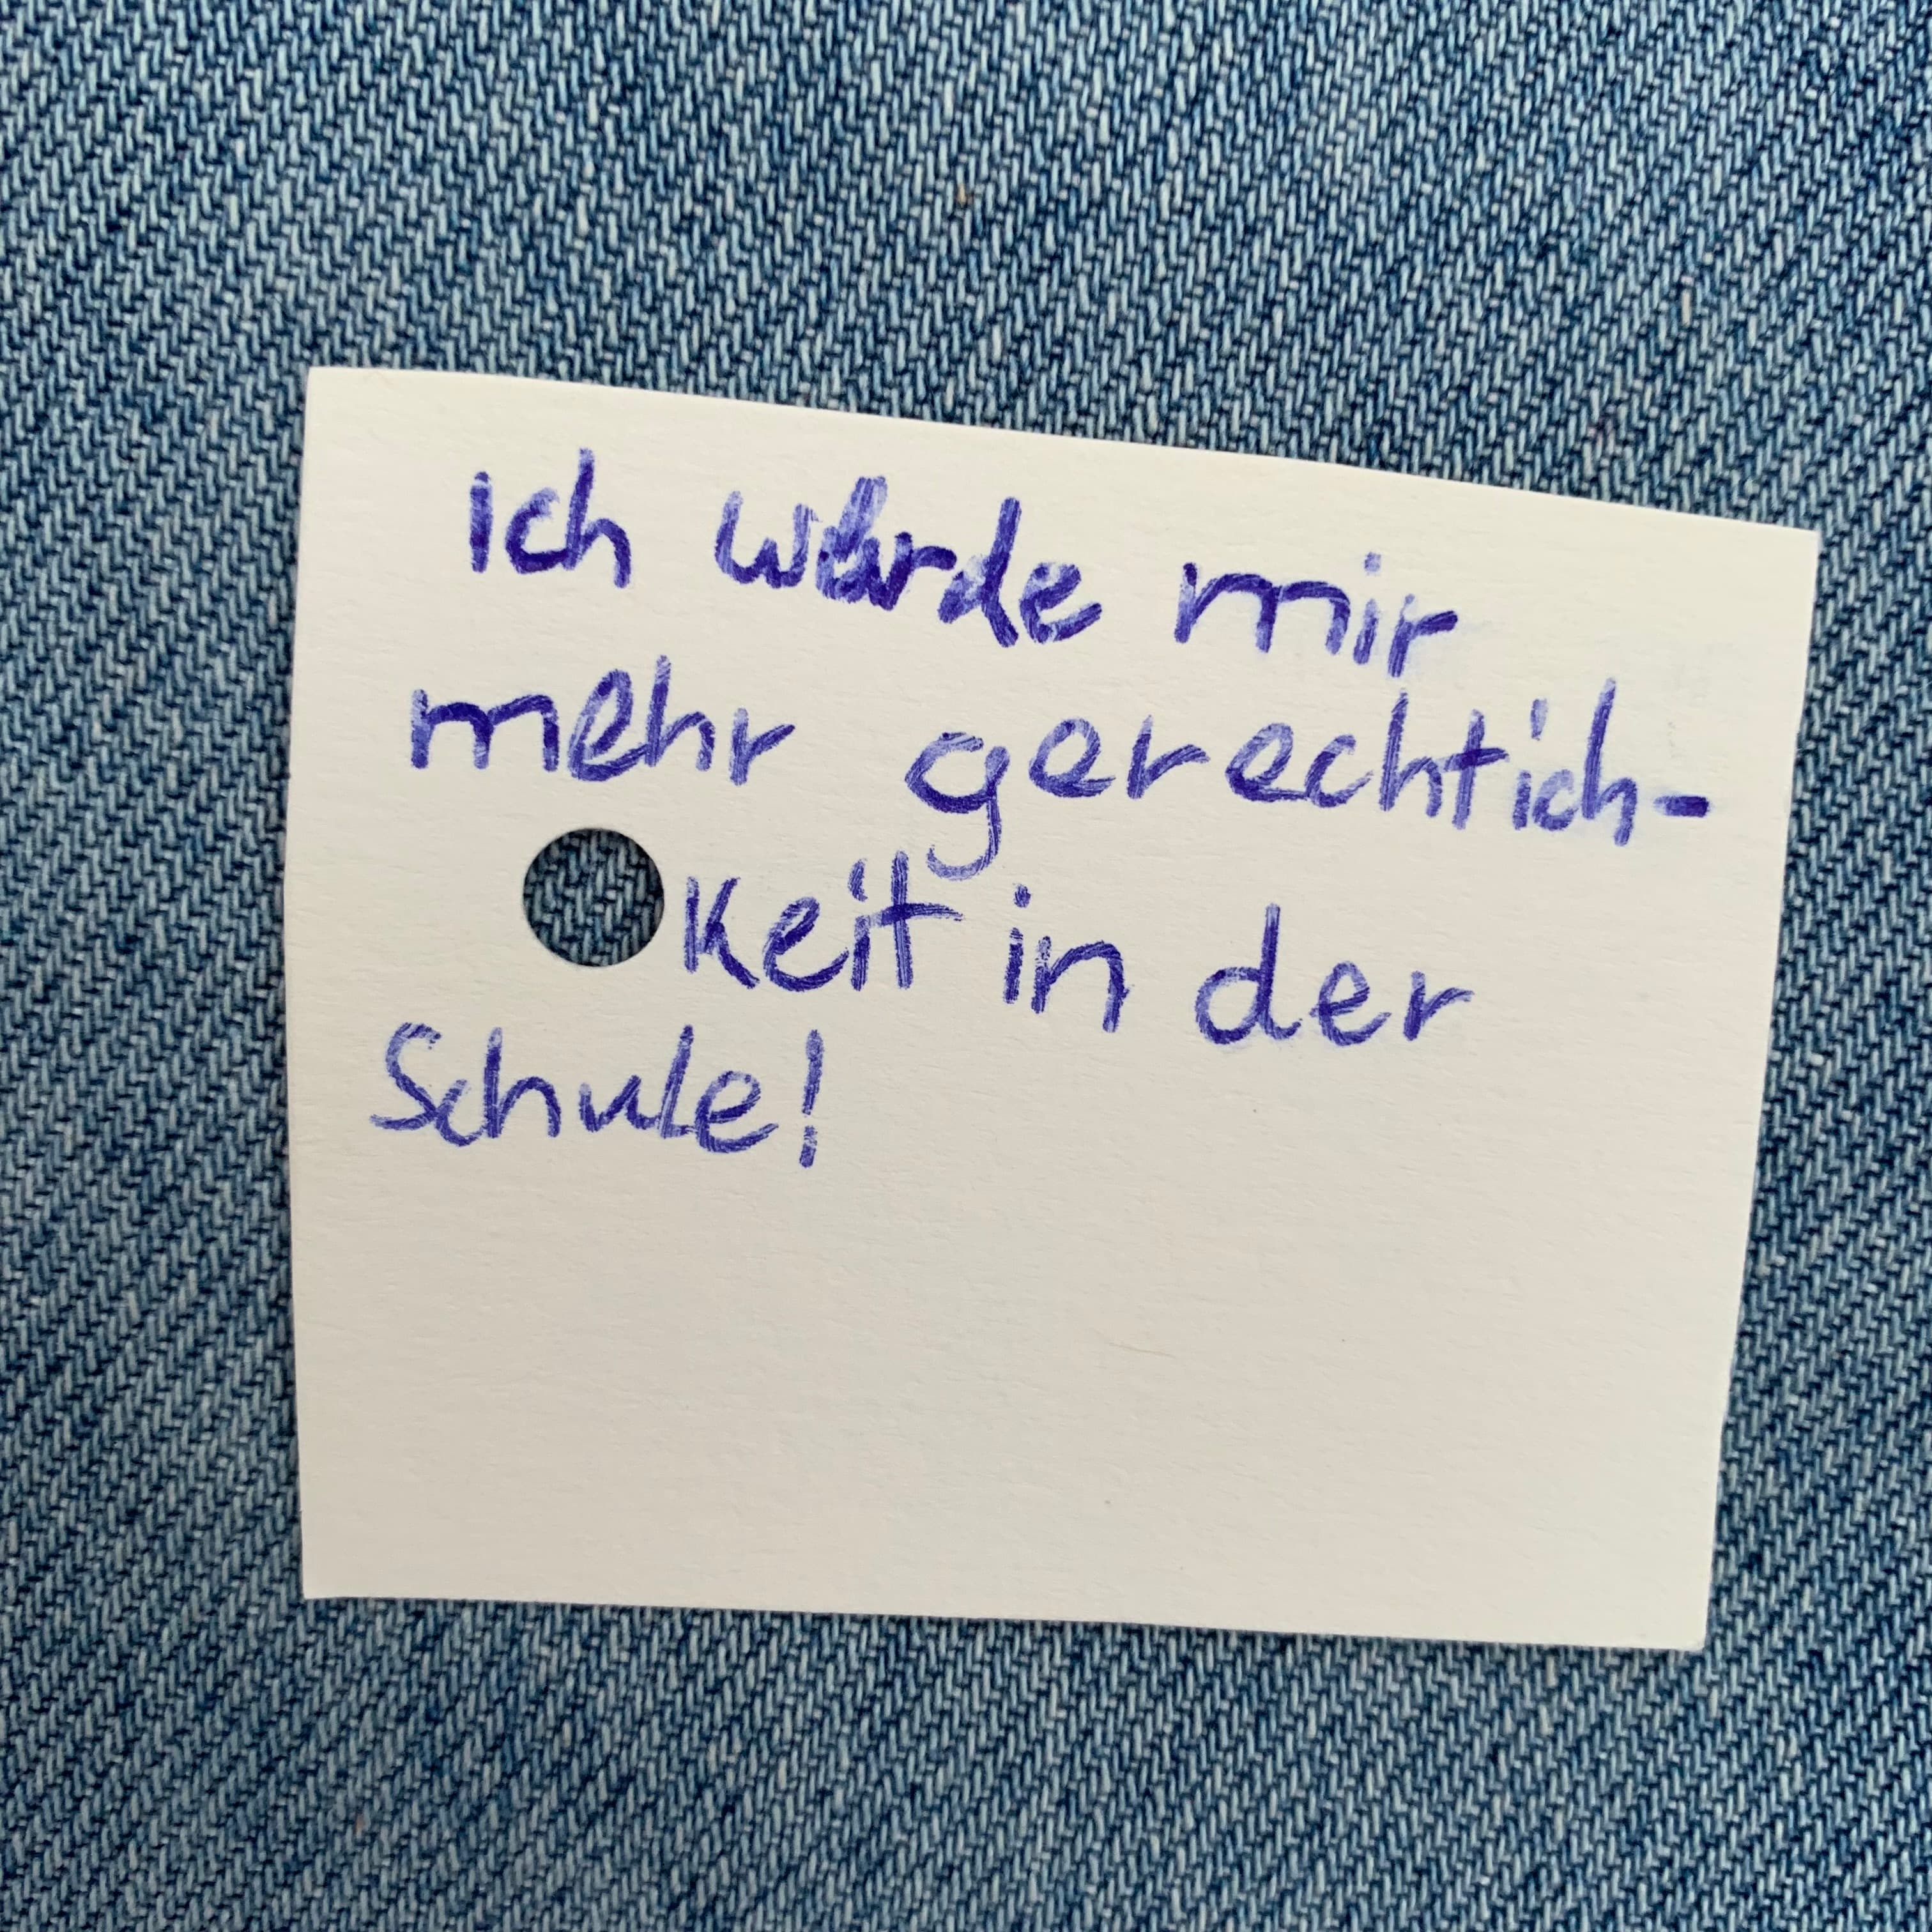 ich würde mir
mehr gerechtich-
keit in der
Schule!